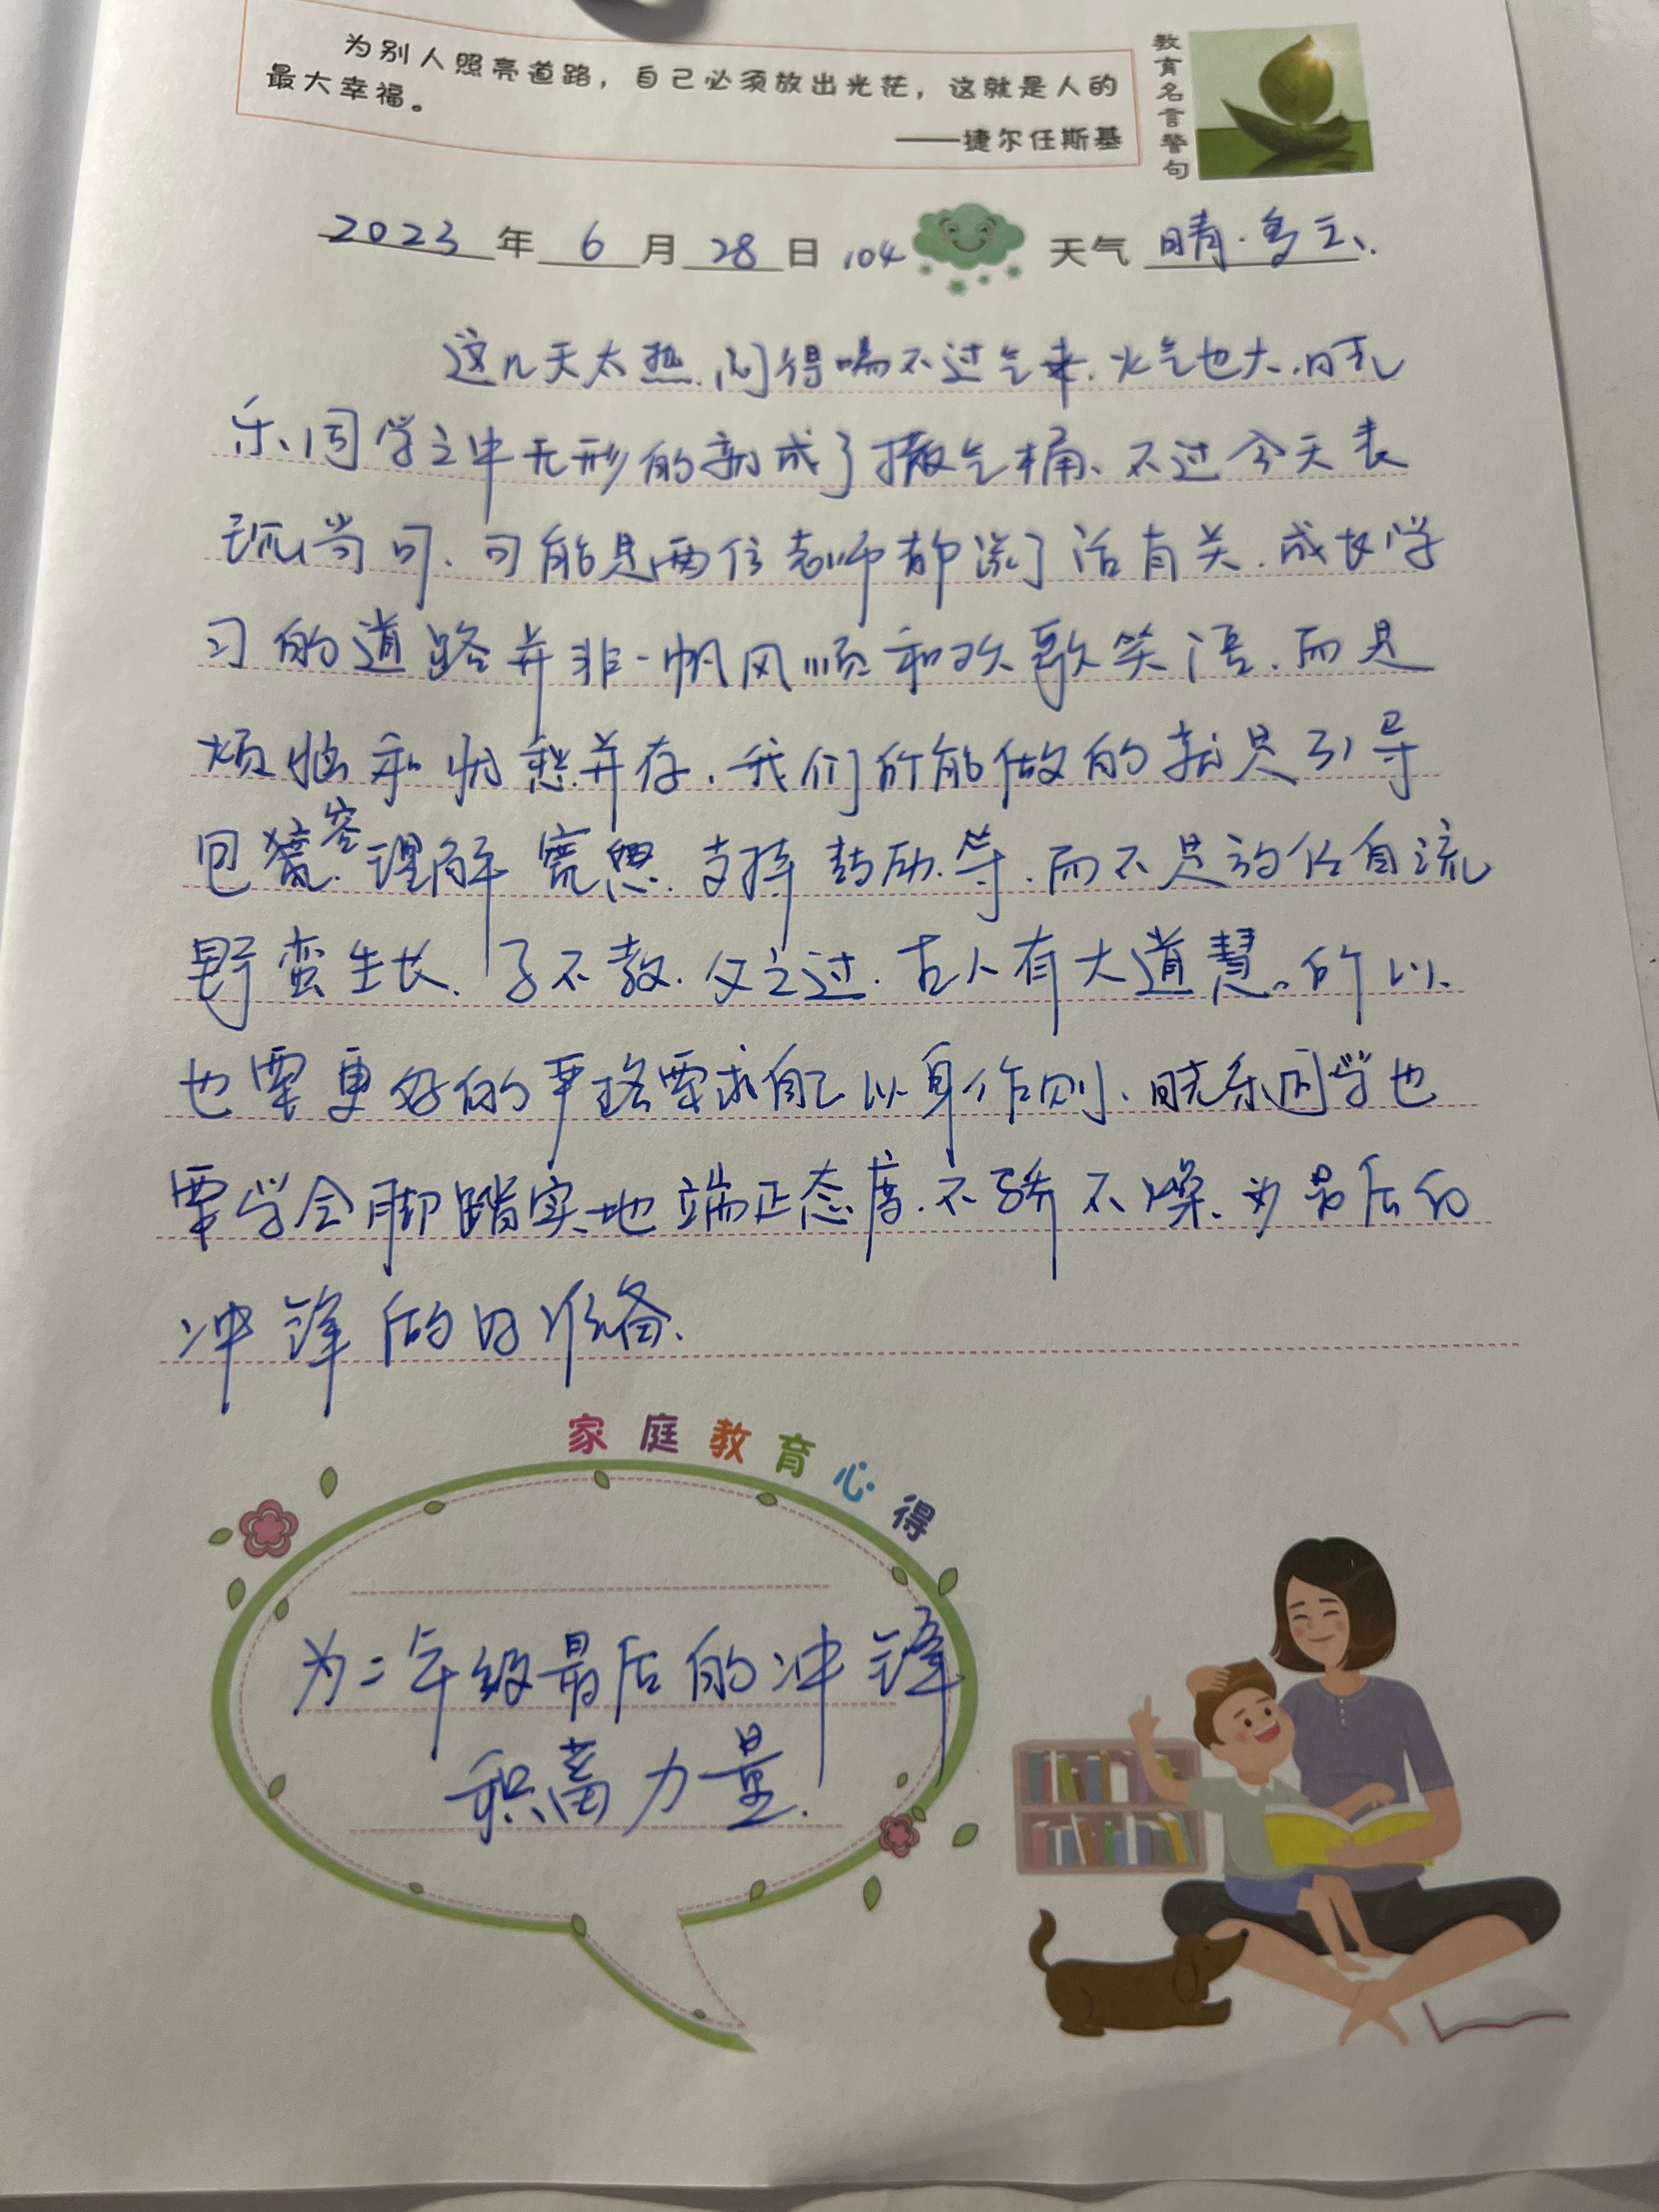 为别人照亮道路，自己必须放出光茫，这就是人的
最大幸福。
——捷尔任斯基
教育名言警句
2023年6月28日 104 天气 晴·多云、
这几天太热.闷得喘不过气来.火气也大.晓
乐同学之中无形的就成了撒气桶、不过今天表
现尚可.可能是两位老师都说了话有关.成长学
习的道路并非一帆风顺和欢歌笑语.而是
烦恼和忧愁并存.我们所能做的就是引导
包容.理解 宽恕.支持 鼓励.等.而不是放任自流
野蛮生长.子不教.父之过.古人有大道慧。所以
也要更好的严格要求自己以身作则、晓乐同学也
要学会脚踏实地端正态度.不骄不燥.为最后的
冲锋做的好准备.
家庭教育心得
为二年级最后的冲锋
积蓄力量.